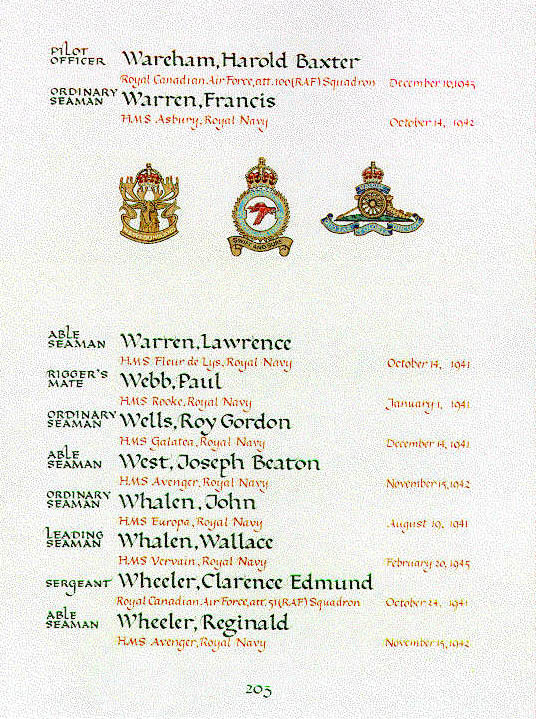 PILOT OFFICER Wareham, Harold Baxter
Royal Canadian Air Force, att. 100 (RAF) Squadron December 16, 1943
ORDINARY SEAMAN Warren, Francis
H.M.S Asbury, Royal Navy October 14, 1942
SWIFT AND SURE
ABLE SEAMAN Warren, Lawrence
H.M.S Fleur de Lys, Royal Navy October 14, 1941
RIGGER'S MATE Webb, Paul
H.M.S Rooke, Royal Navy January 1, 1941
ORDINARY SEAMAN Wells, Roy Gordon
H.M.S Galatea, Royal Navy December 14, 1941
ABLE SEAMAN West, Joseph Beaton
H.M.S Avenger, Royal Navy November 15, 1942
ORDINARY SEAMAN Whalen, John
H.M.S Europa, Royal Navy August 19, 1941
LEADING SEAMAN Whalen, Wallace
H.M.S Vervain, Royal Navy February 20, 1945
SERGEANT Wheeler, Clarence Edmund
Royal Canadian Air Force, att. 51 (RAF) Squadron October 24, 1941
ABLE SEAMAN Wheeler, Reginald
H.M.S Avenger, Royal Navy November 15, 1942
205